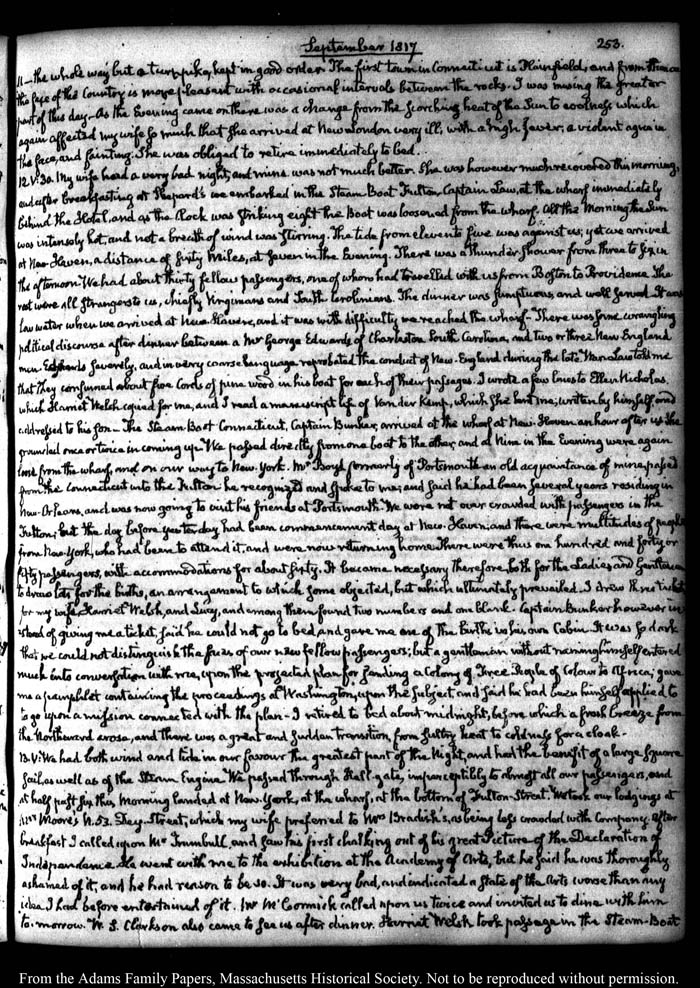 September 1817
253.
11 - the whole way but a turnpike, kept in good order. The first town in Connecticut is Plainfield, and from thence
the face of the Country is more pleasant with occasional intervals between the rocks. I was musing the greater
part of this day - As the Evening came on there was a change from the scorching heat of the Sun to coolness which
again affected my wife so much that she arrived at New London very ill; with a high fever; a violent ague in
the face, and fainting. She was obliged to retire immediately to bed.
12. V:30. My wife had a very bad night, and mine was not much better. She was however much recovered this morning,
and after breakfasting at Shepard's we embarked in the Steam Boat Fulton, Captain Law, at the wharf immediately
behind the Hotel, and as the Clock was striking eight the Boat was loosened from the wharf. All the Morning the Sun
was intensely hot, and not a breath of wind was stirring. The tide from eleven to five was against us; yet we arrived
at New-Haven, a distance of sixty Miles, at seven in the Evening. There was a Thunder Shower from three to six in
the afternoon. We had about thirty fellow passengers, one of whom had travelled with us from Boston to Providence. The
rest were all Strangers to us, chiefly Virginians and South Carolinians. The dinner was sumptuous and well served. It was
low water when we arrived at New-Haven, and it was with difficulty we reached the wharf - There was some wrangling
political discourse after dinner between a Mr George Edwards of Charleston South Carolina, and two or three New England
men. Edwards severely, and in very coarse language reprobated the conduct of New-England during the late War. Law told me
that they consumed about five Cords of pine wood in his boat for each of their passages. I wrote a few lines to Ellen Nicholas,
which Harriet Welsh copied for me, and I read a manuscript life of Van der Kemp, which she lent me; written by himself, and
addressed to his son - The Steam-Boat Connecticut, Captain Bunker, arrived at the wharf at New-Haven an hour after us She
grounded once or twice in coming up. We passed directly from one boat to the other, and at Nine in the Evening were again
loose from the wharf, and on our way to New-York. Mr Boyd formerly of Portsmouth an old acquaintance of mine, passed
from the Connecticut into the Fulton he recognized and spoke to me; and said he had been several years residing in
New-Orleans, and was now going to visit his friends at Portsmouth. We were not over crowded with passengers in the
Fulton; but the day before yesterday had been commencement day at New-Haven; and there were multitudes of people
from New-York, who had been to attend it, and were now returning home. There were thus one hundred and forty or
fifty passengers, with accommodations for about sixty. It became necessary therefore, both for the Ladies and Gentlemen
to draw lots for the births, an arrangement to which some objected, but which ultimately prevailed. I drew three tickets
for my wife, Harriet Welsh, and Lucy, and among them found two numbers and one blank. Captain Bunker however in-
stead of giving me a ticket, said he could not go to bed, and gave me one of the births in his own Cabin. It was so dark
that we could not distinguish the faces of our new fellow passengers; but a gentleman without naming himself entered
much into conversation with me, upon the projected plan for sending a Colony of Free People of Colour to Africa; gave
me a pamphlet containing the proceedings at Washington, upon the subject and said he had been himself applied to
to go upon a mission connected with the plan - I retired to bed about midnight, before which a fresh breeze from
the Northward arose, and there was a great and sudden transition, from sultry heat to coldness for a cloak -
13. V: We had both wind and tide in our favour the greatest part of the Night, and had the benefit of a large square
sail, as well as of the Steam Engine. We passed through Hell-gate, imperceptibly to almost all our passengers, and
at half past six this Morning landed at New-York, at the wharf, at the bottom of Fulton-Street. We took our lodgings at
Mrs Moore's N. 53. Dey-Street, which my wife preferred to Mrs Bradish's, as being less crowded with Company. After
breakfast I called upon Mr Trumbull, and saw his first chalking out of his great Picture of the Declaration of
Independance. He went with me to the exhibition at the Academy of Arts, but he said he was thoroughly
ashamed of it, and he had reason to be so. It was very bad, and indicated a State of the Arts worse than any
idea I had before entertained of it. Mr McCormick called upon us twice and invited us to dine with him
to-morrow. W. S. Clarkson also came to see us after dinner. Harriet Welsh took passage in the Steam-Boat
From the Adams Family Papers, Massachusetts Historical Society. Not to be reproduced without permission.